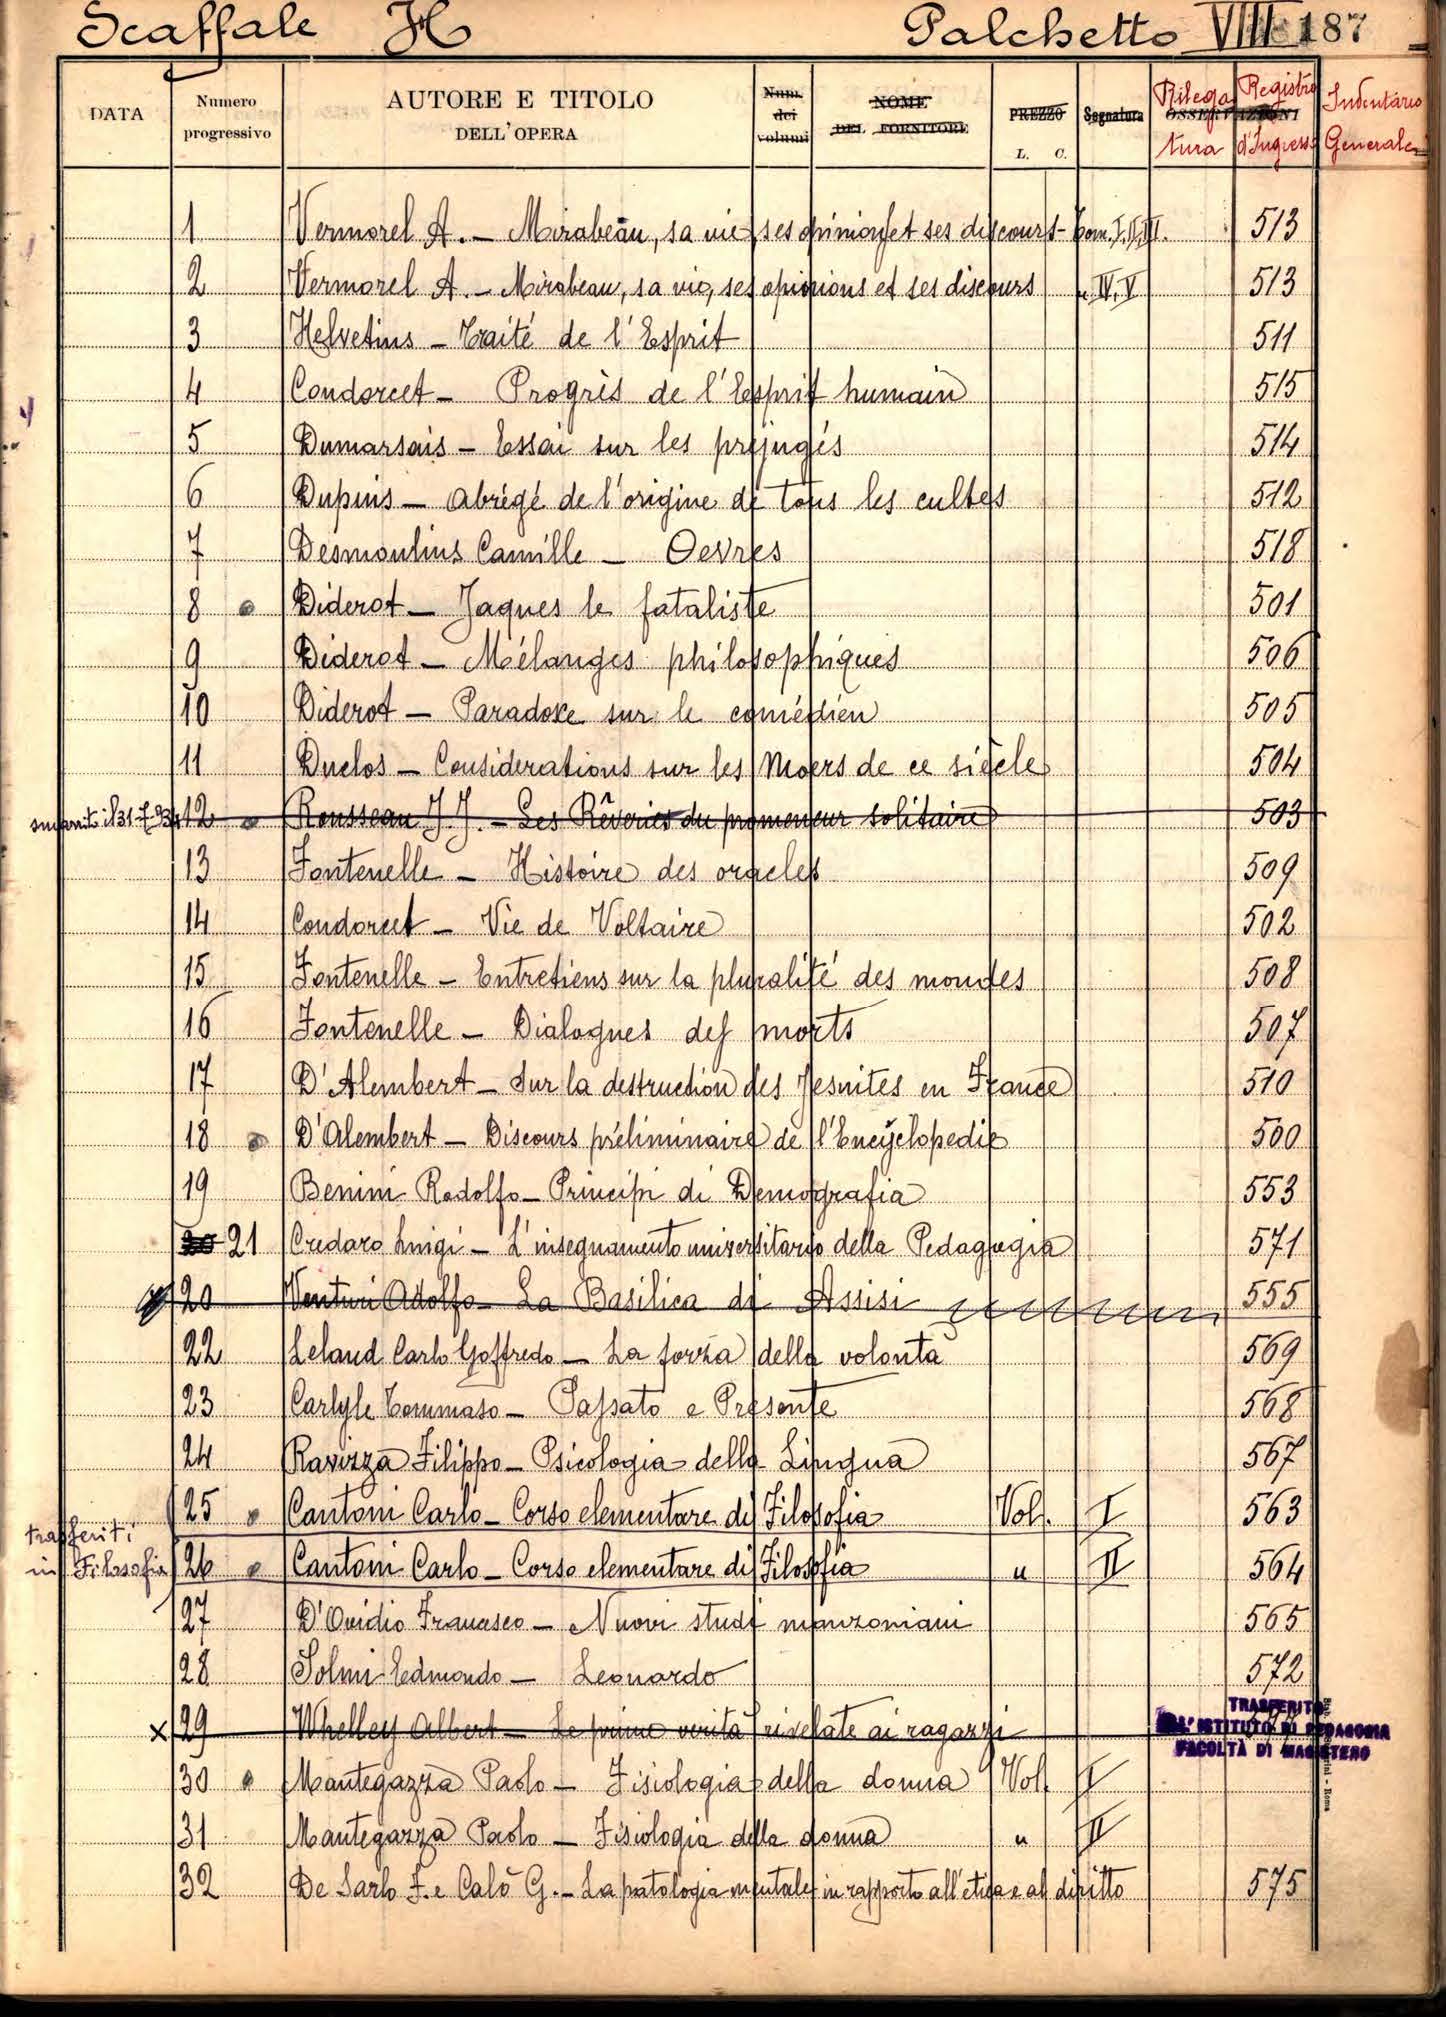 Scaffale H Palchetto VIII 187
DATA Numero progressivo AUTORE E TITOLO DELL'OPERA Num. dei volumi NOME DEL FORNITORE PREZZO L. C. Segnatura OSSERVAZIONI Rilegatura Registro d'Ingresso Inventario Generale
1 Vermorel A. – Mirabeau, sa vie, ses opinions et ses discours – Tom. I, II, III. 513
2 Vermorel A. – Mirabeau, sa vie, ses opinions et ses discours " IV, V 513
3 Helvetius – Traité de l'Esprit 511
4 Condorcet – Progrès de l'Esprit humain 515
5 Dumarsais – Essai sur les préjugés 514
6 Dupuis – Abrégé de l'origine de tous les cultes 512
7 Desmoulins Camille – Oevres 518
8 Diderot – Jaques le fataliste 501
9 Diderot – Mélanges philosophiques 506
10 Diderot – Paradoxe sur le comédien 505
11 Duclos – Considerations sur les Moers de ce siècle 504
smarrito il 31-7-934 12 Rousseau J. J. – Les Rêveries du promeneur solitaire 503
13 Fontenelle – Histoire des oracles 509
14 Condorcet – Vie de Voltaire 502
15 Fontenelle – Entretiens sur la pluralité des mondes 508
16 Fontenelle – Dialogues des morts 507
17 D'Alembert – Sur la destruction des Jesuites en France 510
18 D'Alembert – Discours préliminaire de l'Encyclopedie 500
19 Benini Rodolfo – Principi di Demografia 553
20 21 Credaro Luigi – L'insegnamento universitario della Pedagogia 571
20 Venturi Adolfo – La Basilica di Assisi 555
22 Leland Carlo Goffredo – La forza della volontà 569
23 Carlyle Tommaso – Passato e Presente 568
24 Ravizza Filippo – Psicologia della Lingua 567
25 Cantoni Carlo – Corso elementare di Filosofia Vol. I 563
trasferiti
in Filosofia 26 Cantoni Carlo – Corso elementare di Filosofia " II 564
27 D'Ovidio Francesco – Nuovi studi manzoniani 565
28 Solmi Edmondo – Leonardo 572
x 29 Whelley Albert – Le prime verità rivelate ai ragazzi
TRASFERITO
ALL'ISTITUTO DI PEDAGOGIA
FACOLTÀ DI MAGISTERO
30 Mantegazza Paolo – Fisiologia della donna Vol. I
31 Mantegazza Paolo – Fisiologia della donna " II
32 De Sarlo F. e Calò G. – La patologia mentale in rapporto all'etica e al diritto 575